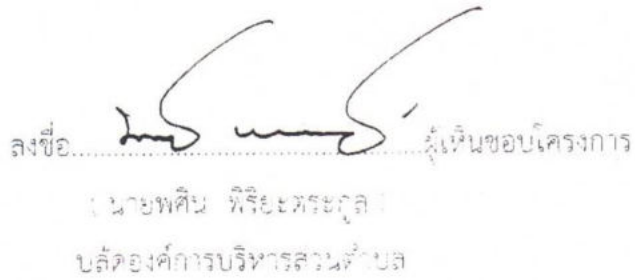 ลงชื่อ........................................ผู้เห็นชอบโครงการ
( นายพศิน พิริยะตระกูล )
ปลัดองค์การบริหารส่วนตำบล